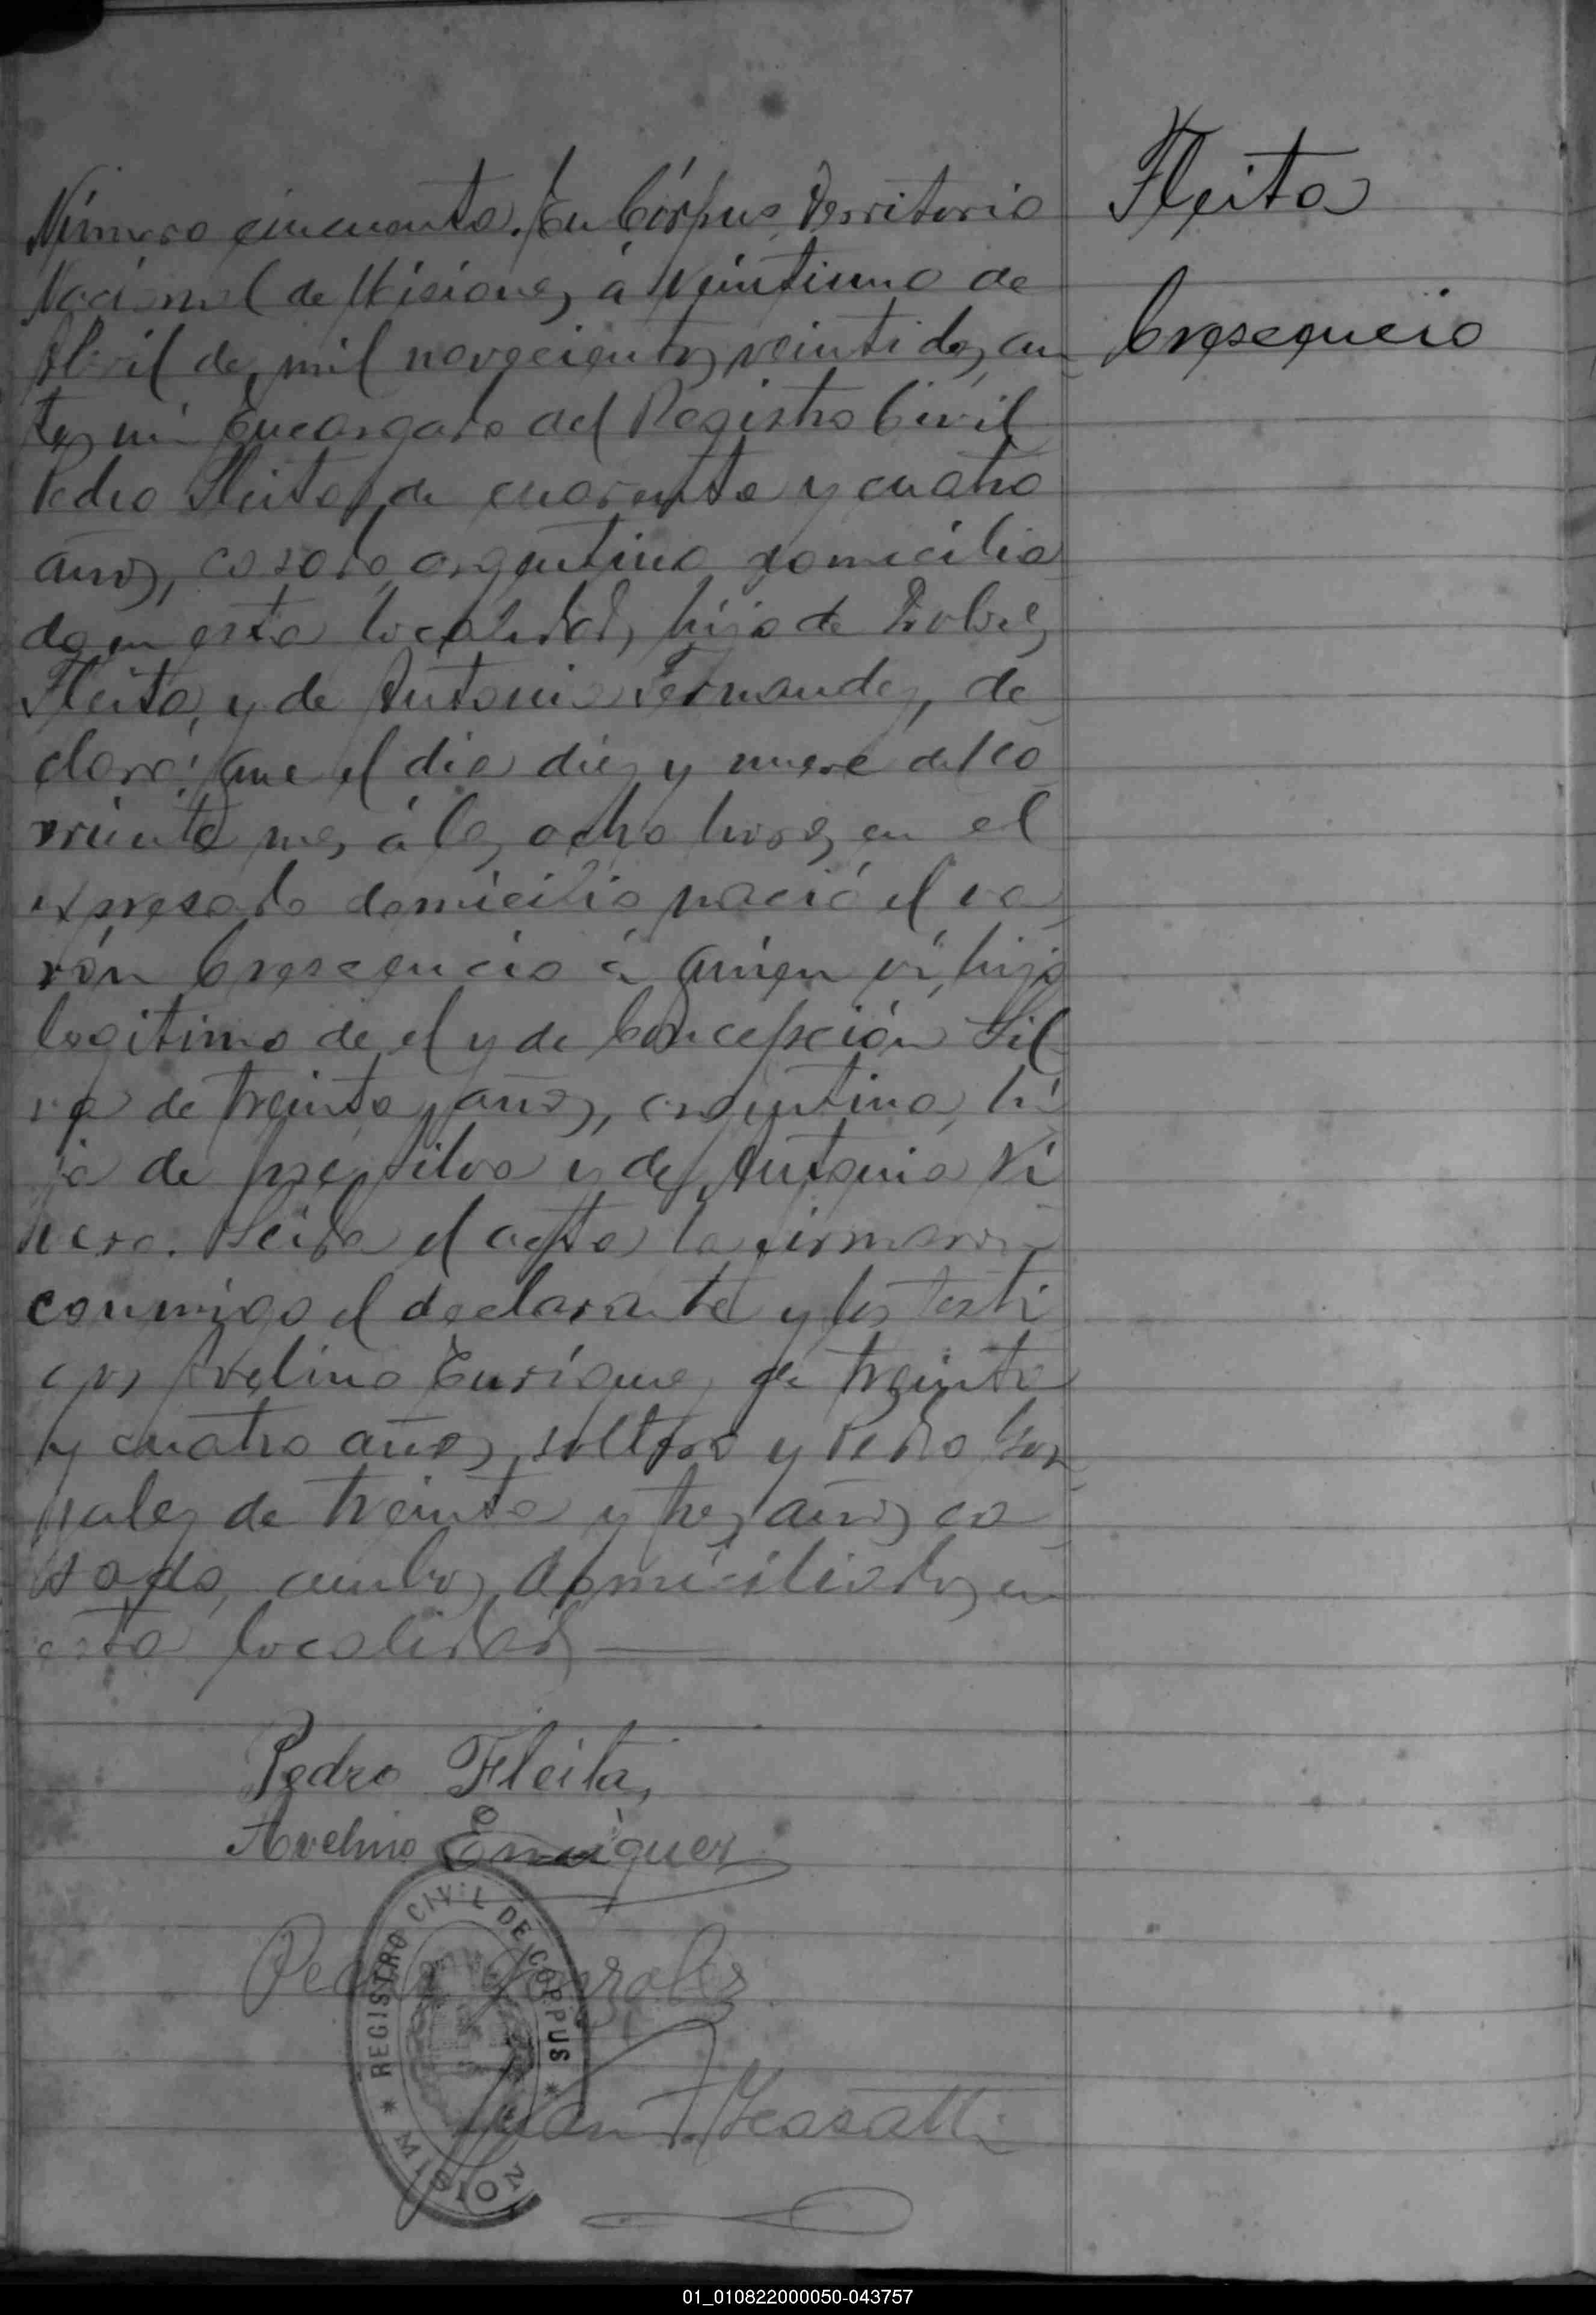 Número cincuenta. En Córpus Territorio
Nacional de Misiones, á veintiuno de
Abril de mil novecientos veintidos, an
tes mi Encargado del Registro Civil
Pedro Fleita, de cuarenta y cuatro
años, casado argentino domicilia
do en esta localidad, hijo de
Fleita, y de Antonia Fernandez, de
claró: que el dia diez y nueve del co
rriente mes, á las ocho horas, en el
expresado domicilio nació el va
rón Cresencio á quien ví, hijo
legitimo de el y de Concepción Sil
va de treinta años, argentina, hi
ja de José Silva y de Antonia Vi
. Leída el acta la firmaron
conmigo el declarante y los testi
gos Avelino Enriquez de treinta
y cuatro años, soltero y Pedro Gon
zalez de treinta y tres años ca
sado, ambos domiciliados en
esta localidad
Pedro Fleita,
Avelino Enriquez
Pedro Gonzalez
Juan
REGISTRO CIVIL DE CORPUS
* MISION
Fleita
Cresencio
01_010822000050-043757